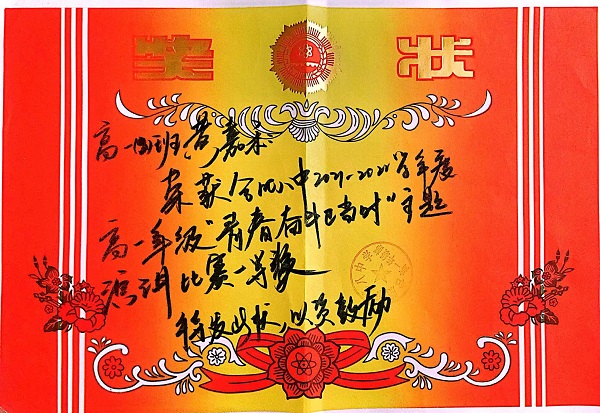 奖状
高一(4)班
荣获合肥八中2021-2022学年度
高一年级"青春奋斗正当时"主题
演讲比赛一等奖
特发此状,以资鼓励